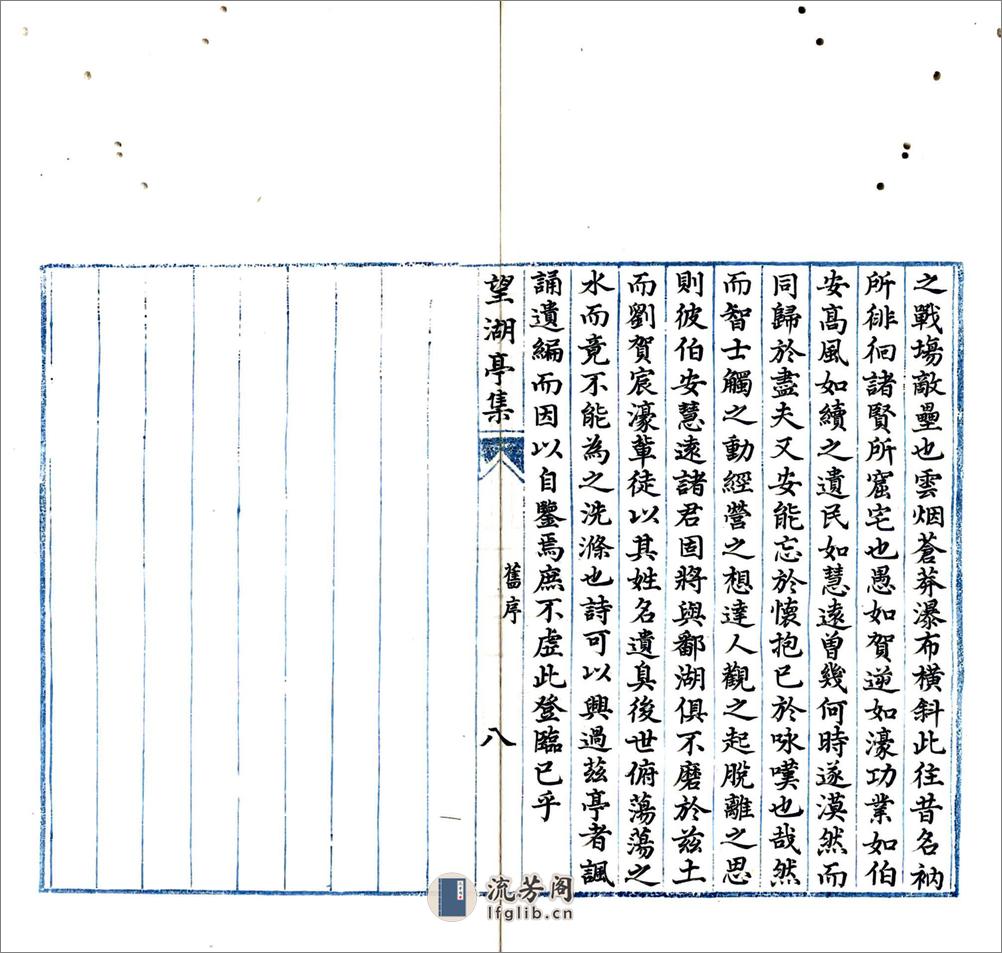 之戰塲敵壘也雲烟蒼莽瀑布橫斜此往昔名衲
所徘徊諸賢所窟宅也愚如賀逆如濠功業如伯
安髙風如續之遺民如慧逺曽幾何時遂漠然而
同歸於盡夫又安能忘於懷抱已於咏嘆也哉然
而智士觸之動經營之想達人觀之起脫離之思
則彼伯安慧逺諸君固將與鄱湖俱不磨於兹土
而劉賀宸濠輩徒以其姓名遺臭後世俯蕩蕩之
水而竟不能為之洗滌也詩可以興過兹亭者諷
誦遺編而因以自鑒焉庶不虛此登臨已乎
望湖亭集
舊序
八
流芳阁
lfglib.cn